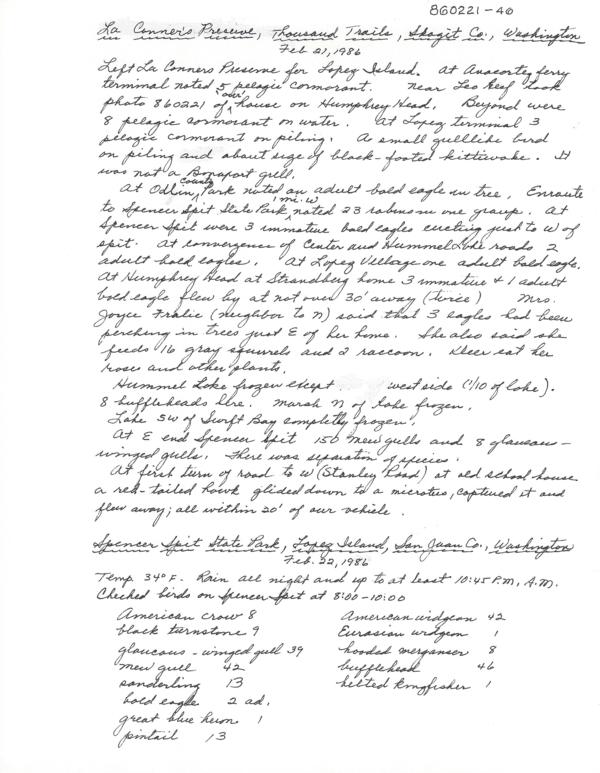 860221-40
La Conner's Preserve, Thousand Trails, Skagit Co., Washington
Feb 21, 1986
Left La Conners Preserve for Lopez Island. At Anacortes ferry
terminal noted 5 pelagic cormorant. Near Leo Reef took
photo 860221 of our house on Humphrey Head. Beyond were
8 pelagic cormorant on water. At Lopez terminal 3
pelagic cormorant on piling. A small gulllike bird
on piling and about size of black-footed kittiwake. It
was not a Bonapart gull.
At Odlin County Park noted an adult bald eagle in tree. Enroute
to Spencer Spit State Park 1 mi. W noted 23 robins in one group. At
Spencer Spit were 3 immature bald eagles circling just to W of
spit. At convergence of Center and Hummel Lake roads 2
adult bald eagles. At Lopez Village one adult bald eagle.
At Humphrey Head at Strandberg home 3 immature + 1 adult
bald eagle flew by at not over 30' away (twice) Mrs.
Joyce Fralic (neighbor to N) said that 3 eagles had been
perching in trees just E of her home. She also said she
feeds 16 gray squirrels and 2 raccoon. Deer eat her
roses and other plants.
Hummel Lake frozen except west side (1/10 of lake).
8 buffleheads here. Marsh N of lake frozen.
Lake SW of Swift Bay completly frozen.
At E end Spencer Spit 150 mew gulls and 8 glaucous-
winged gulls. There was separation of species.
At first turn of road to W (Stanley Road) at old school house
a red-tailed hawk glided down to a microtus, captured it and
flew away; all within 20' of our vehicle.
Spencer Spit State Park, Lopez Island, San Juan Co., Washington
Feb. 22, 1986
Temp. 34°F. Rain all night and up to at least 10:45 P.M, A.M.
Checked birds on Spencer Spit at 8:00-10:00
American crow 8
black turnstone 9
glaucous-winged gull 39
mew gull 42
sanderling 13
bald eagle 2 ad.
great blue heron 1
pintail 13
American widgeon 42
Eurasian widgeon 1
hooded merganser 8
bufflehead 46
belted kingfisher 1